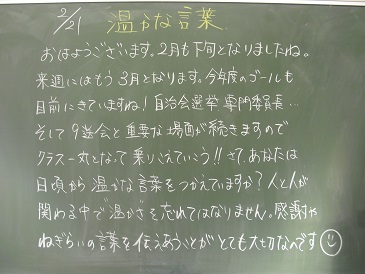 2/21 温かな言葉
おはようございます。2月も下旬となりましたね。
来週にはもう3月となります。今年度のゴールも
目前にきていますね!自治会選挙、専門委員長…
そして9送会と重要な場面が続きますので
クラス一丸となって乗りこえていこう!!さて、あなたは
日頃から温かな言葉をつかえていますか?人と人が
関わる中で温かさを忘れてはなりません。感謝や
ねぎらいの言葉を伝えあうことがとても大切なんです